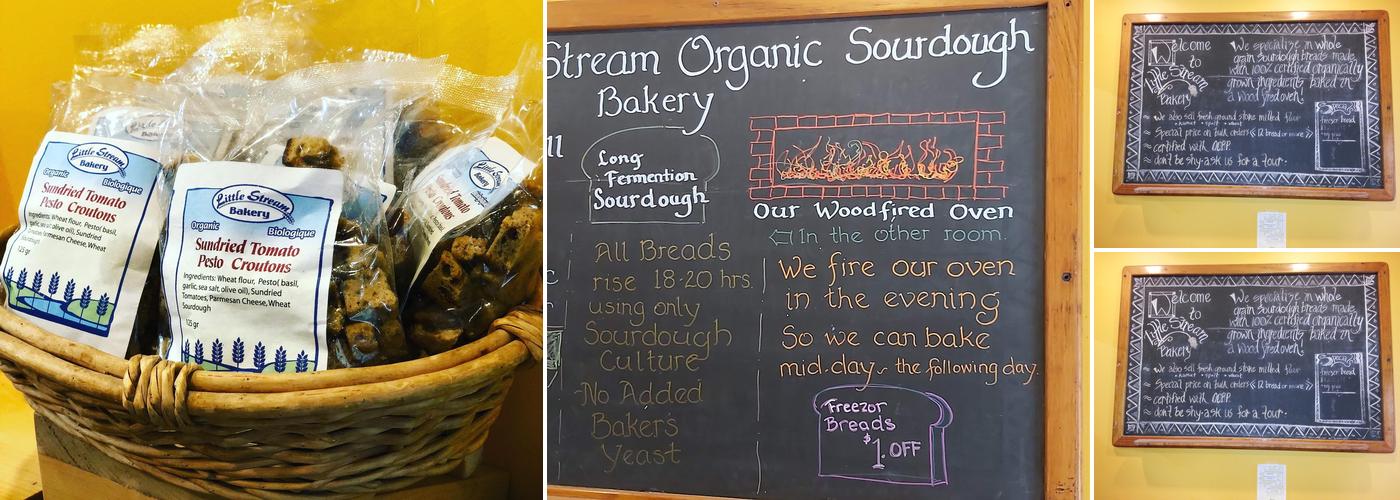 Little Stream
Bakery
Organic
Biologique
Sundried Tomato
Pesto Croutons
Ingredients: Wheat flour, Pesto( basil,
garlic, sea salt, olive oil), Sundried
Tomatoes, Parmesan Cheese, Wheat
Sourdough
125 gr
Little Stream
Bakery
Organic
Biologique
Sundried Tomato
Pesto Croutons
Ingredients: Wheat flour, Pesto( basil,
garlic, sea salt, olive oil), Sundried
Tomatoes, Parmesan Cheese, Wheat
Sourdough
125 gr
Little Stream
Bakery
Stream Organic Sourdough
Bakery
Long
Fermention
Sourdough
All Breads
rise 18-20 hrs.
using only
Sourdough
Culture
No Added
Bakers
Yeast
Our Woodfired Oven
In the other room.
We fire our oven
in the evening
So we can bake
mid-day ~ the following day.
Freezor
Breads
$1.OFF
Welcome
to
Little Stream
Bakery
We specialize in whole
grain sourdough breads made
with 100% certified organically
grown ingredients baked in
a wood fired oven!
≈ We also sell fresh ground stone milled flour
• Kamut • spelt • wheat
≈ Special price on bulk orders (12 bread or more)
≈ certified with OCPP.
≈ don't be shy-ask us for a tour.
Specials
freezer bread
Welcome
to
Little Stream
Bakery
We specialize in whole
grain sourdough breads made
with 100% certified organically
grown ingredients baked in
a wood fired oven!
≈ We also sell fresh ground stone milled flour
• Kamut • spelt • wheat
≈ Special price on bulk orders (12 bread or more)
≈ certified with OCPP.
≈ don't be shy-ask us for a tour.
Specials
freezer bread